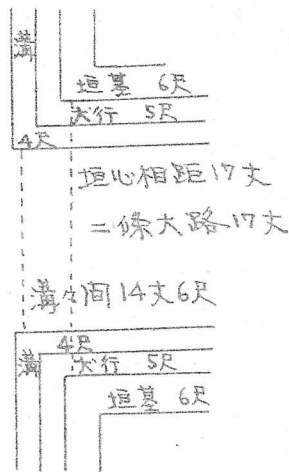 溝
垣基 6尺
犬行 5尺
4尺
垣心相距17丈
二條大路17丈
溝々間14丈6尺
4尺
溝
犬行 5尺
垣基 6尺